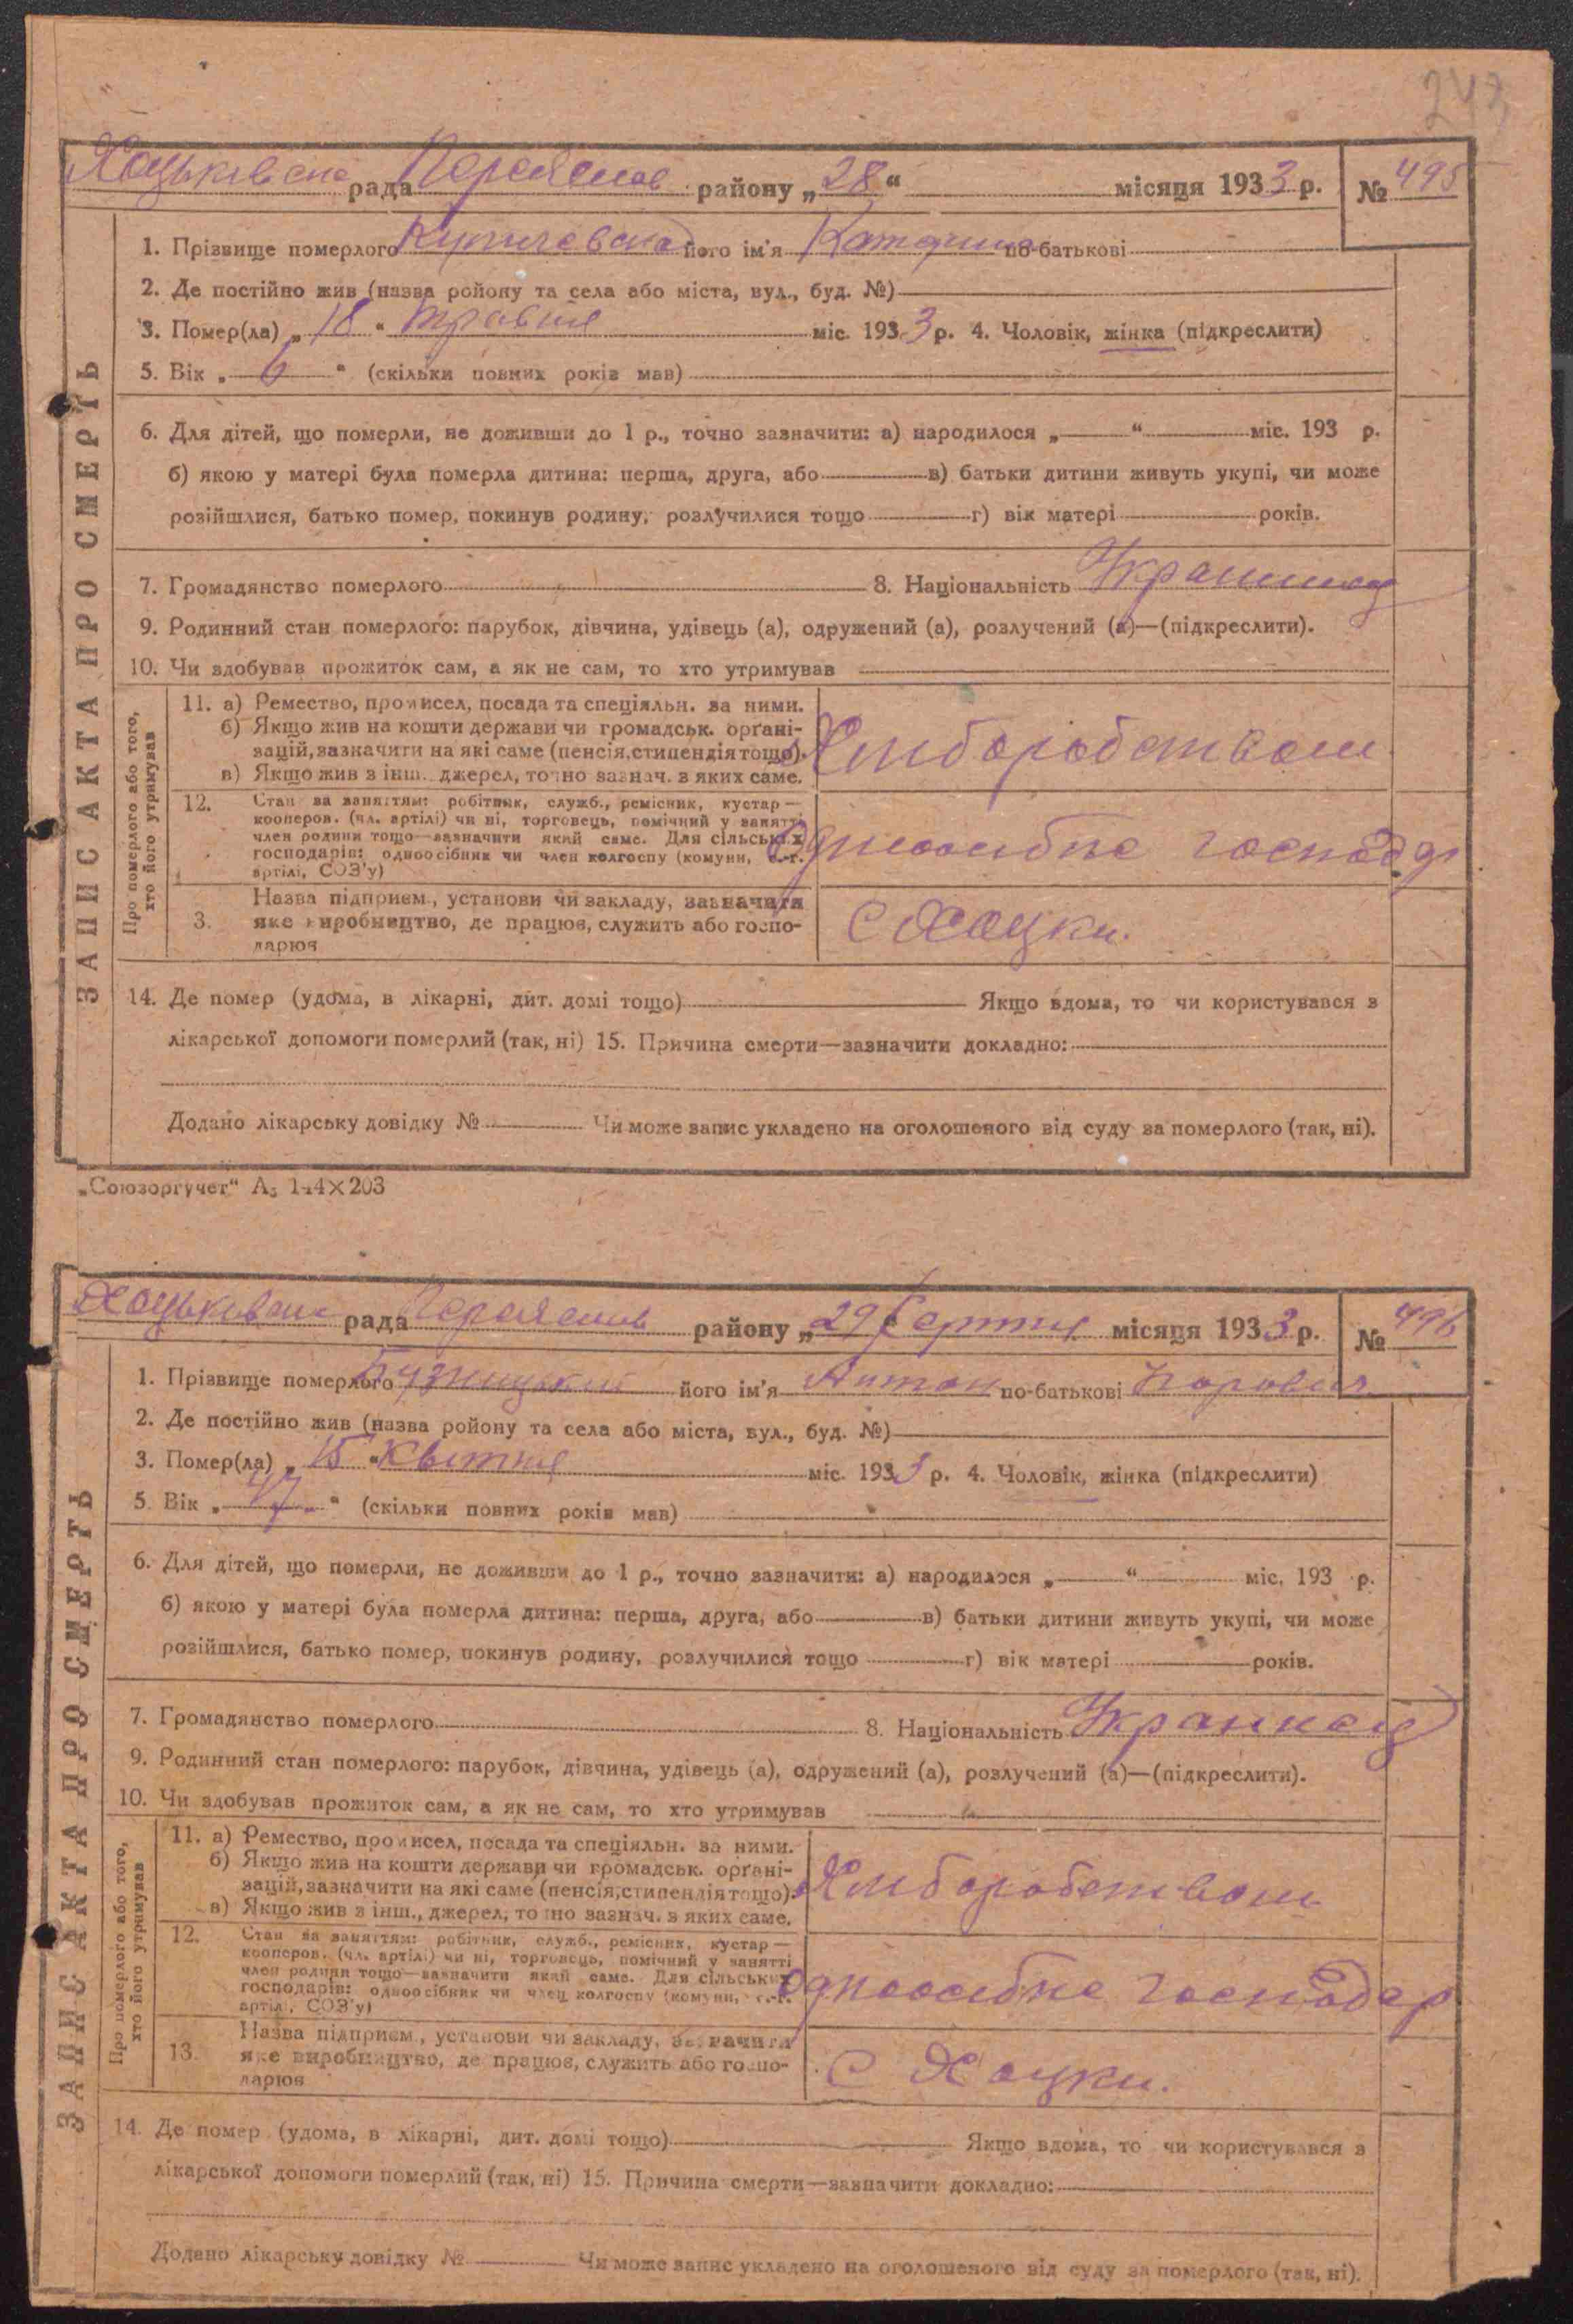 243
Хоцьківська рада Переяслов району „28“ місяця 1933 р. № 495
1. Прізвище померлого його ім'я Катерина по-батькові
2. Де постійно жив (назва ройону та села або міста, вул., буд. №)
3. Помер(ла) „18“ травня міс. 1933 р. 4. Чоловік, жінка (підкреслити)
5. Вік „6“ (скільки повних років мав)
6. Для дітей, що померли, не доживши до 1 р., точно зазначити: а) народилося „ “ міс. 193 р.
б) якою у матері була померла дитина: перша, друга, або в) батьки дитини живуть укупі, чи може
розійшлися, батько помер, покинув родину, розлучилися тощо г) вік матері років.
7. Громадянство померлого 8. Національність
9. Родинний стан померлого: парубок, дівчина, удівець (а), одружений (а), розлучений (а)—(підкреслити).
10. Чи здобував прожиток сам, а як не сам, то хто утримував
ЗАПИС АКТА ПРО СМЕРТЬ
Про померлого або того, хто його утримував
11. а) Ремество, промисел, посада та спеціяльн. за ними.
б) Якщо жив на кошти держави чи громадськ. орґані-
зацій, зазначити на які саме (пенсія, стипендія тощо).
в) Якщо жив з інш. джерел, точно зазнач. з яких саме.
Хліборобством
12. Стан за заняттям: робітник, служб., ремісник, кустар—
кооперов. (чл. артілі) чи ні, торговець, помічний у занятті
член родини тощо—зазначити який саме. Для сільських
господарів: одноосібник чи член колгоспу (комуни, с.-г.
артілі, СОЗ'у)
Одноосібне господар
3. Назва підприєм., установи чи закладу, зазначити
яке виробництво, де працюв, служить або госпо-
дарюв
С Хоцки.
14. Де помер (удома, в лікарні, дит. домі тощо) Якщо вдома, то чи користувався з
лікарської допомоги померлий (так, ні) 15. Причина смерти—зазначити докладно:
Додано лікарську довідку № Чи може запис укладено на оголошеного від суду за померлого (так, ні).
„Союзоргучет“ А5 144×203
Хоцьківська рада Переяслов району „29 Серпня місяця 1933 р. № 496
1. Прізвище померлого його ім'я Антон по-батькові
2. Де постійно жив (назва ройону та села або міста, вул., буд. №)
3. Помер(ла) „15“ Квітня міс. 1933 р. 4. Чоловік, жінка (підкреслити)
5. Вік „47“ (скільки повних років мав)
6. Для дітей, що померли, не доживши до 1 р., точно зазначити: а) народилося „ “ міс. 193 р.
б) якою у матері була померла дитина: перша, друга, або в) батьки дитини живуть укупі, чи може
розійшлися, батько помер, покинув родину, розлучилися тощо г) вік матері років.
7. Громадянство померлого 8. Національність Украинец
9. Родинний стан померлого: парубок, дівчина, удівець (а), одружений (а), розлучений (а)—(підкреслити).
10. Чи здобував прожиток сам, а як не сам, то хто утримував
ЗАПИС АКТА ПРО СМЕРТЬ
Про померлого або того, хто його утримував
11. а) Ремество, промисел, посада та спеціяльн. за ними.
б) Якщо жив на кошти держави чи громадськ. орґані-
зацій, зазначити на які саме (пенсія, стипендія тощо).
в) Якщо жив з інш., джерел, точно зазнач. з яких саме.
Хліборобством
12. Стан за заняттям: робітник, служб., ремісник, кустар—
кооперов. (чл. артілі) чи ні, торговець, помічний у занятті
член родини тощо—зазначити який саме. Для сільських
господарів: одноосібник чи член колгоспу (комуни, с.-г.
артілі, СОЗ'у)
Одноосібне господар
13. Назва підприєм., установи чи закладу, зазначити
яке виробництво, де працюв, служить або госпо-
дарюв
С Хоцки.
14. Де помер (удома, в лікарні, дит. домі тощо) Якщо вдома, то чи користувався з
лікарської допомоги померлий (так, ні) 15. Причина смерти—зазначити докладно:
Додано лікарську довідку № Чи може запис укладено на оголошеного від суду за померлого (так, ні).